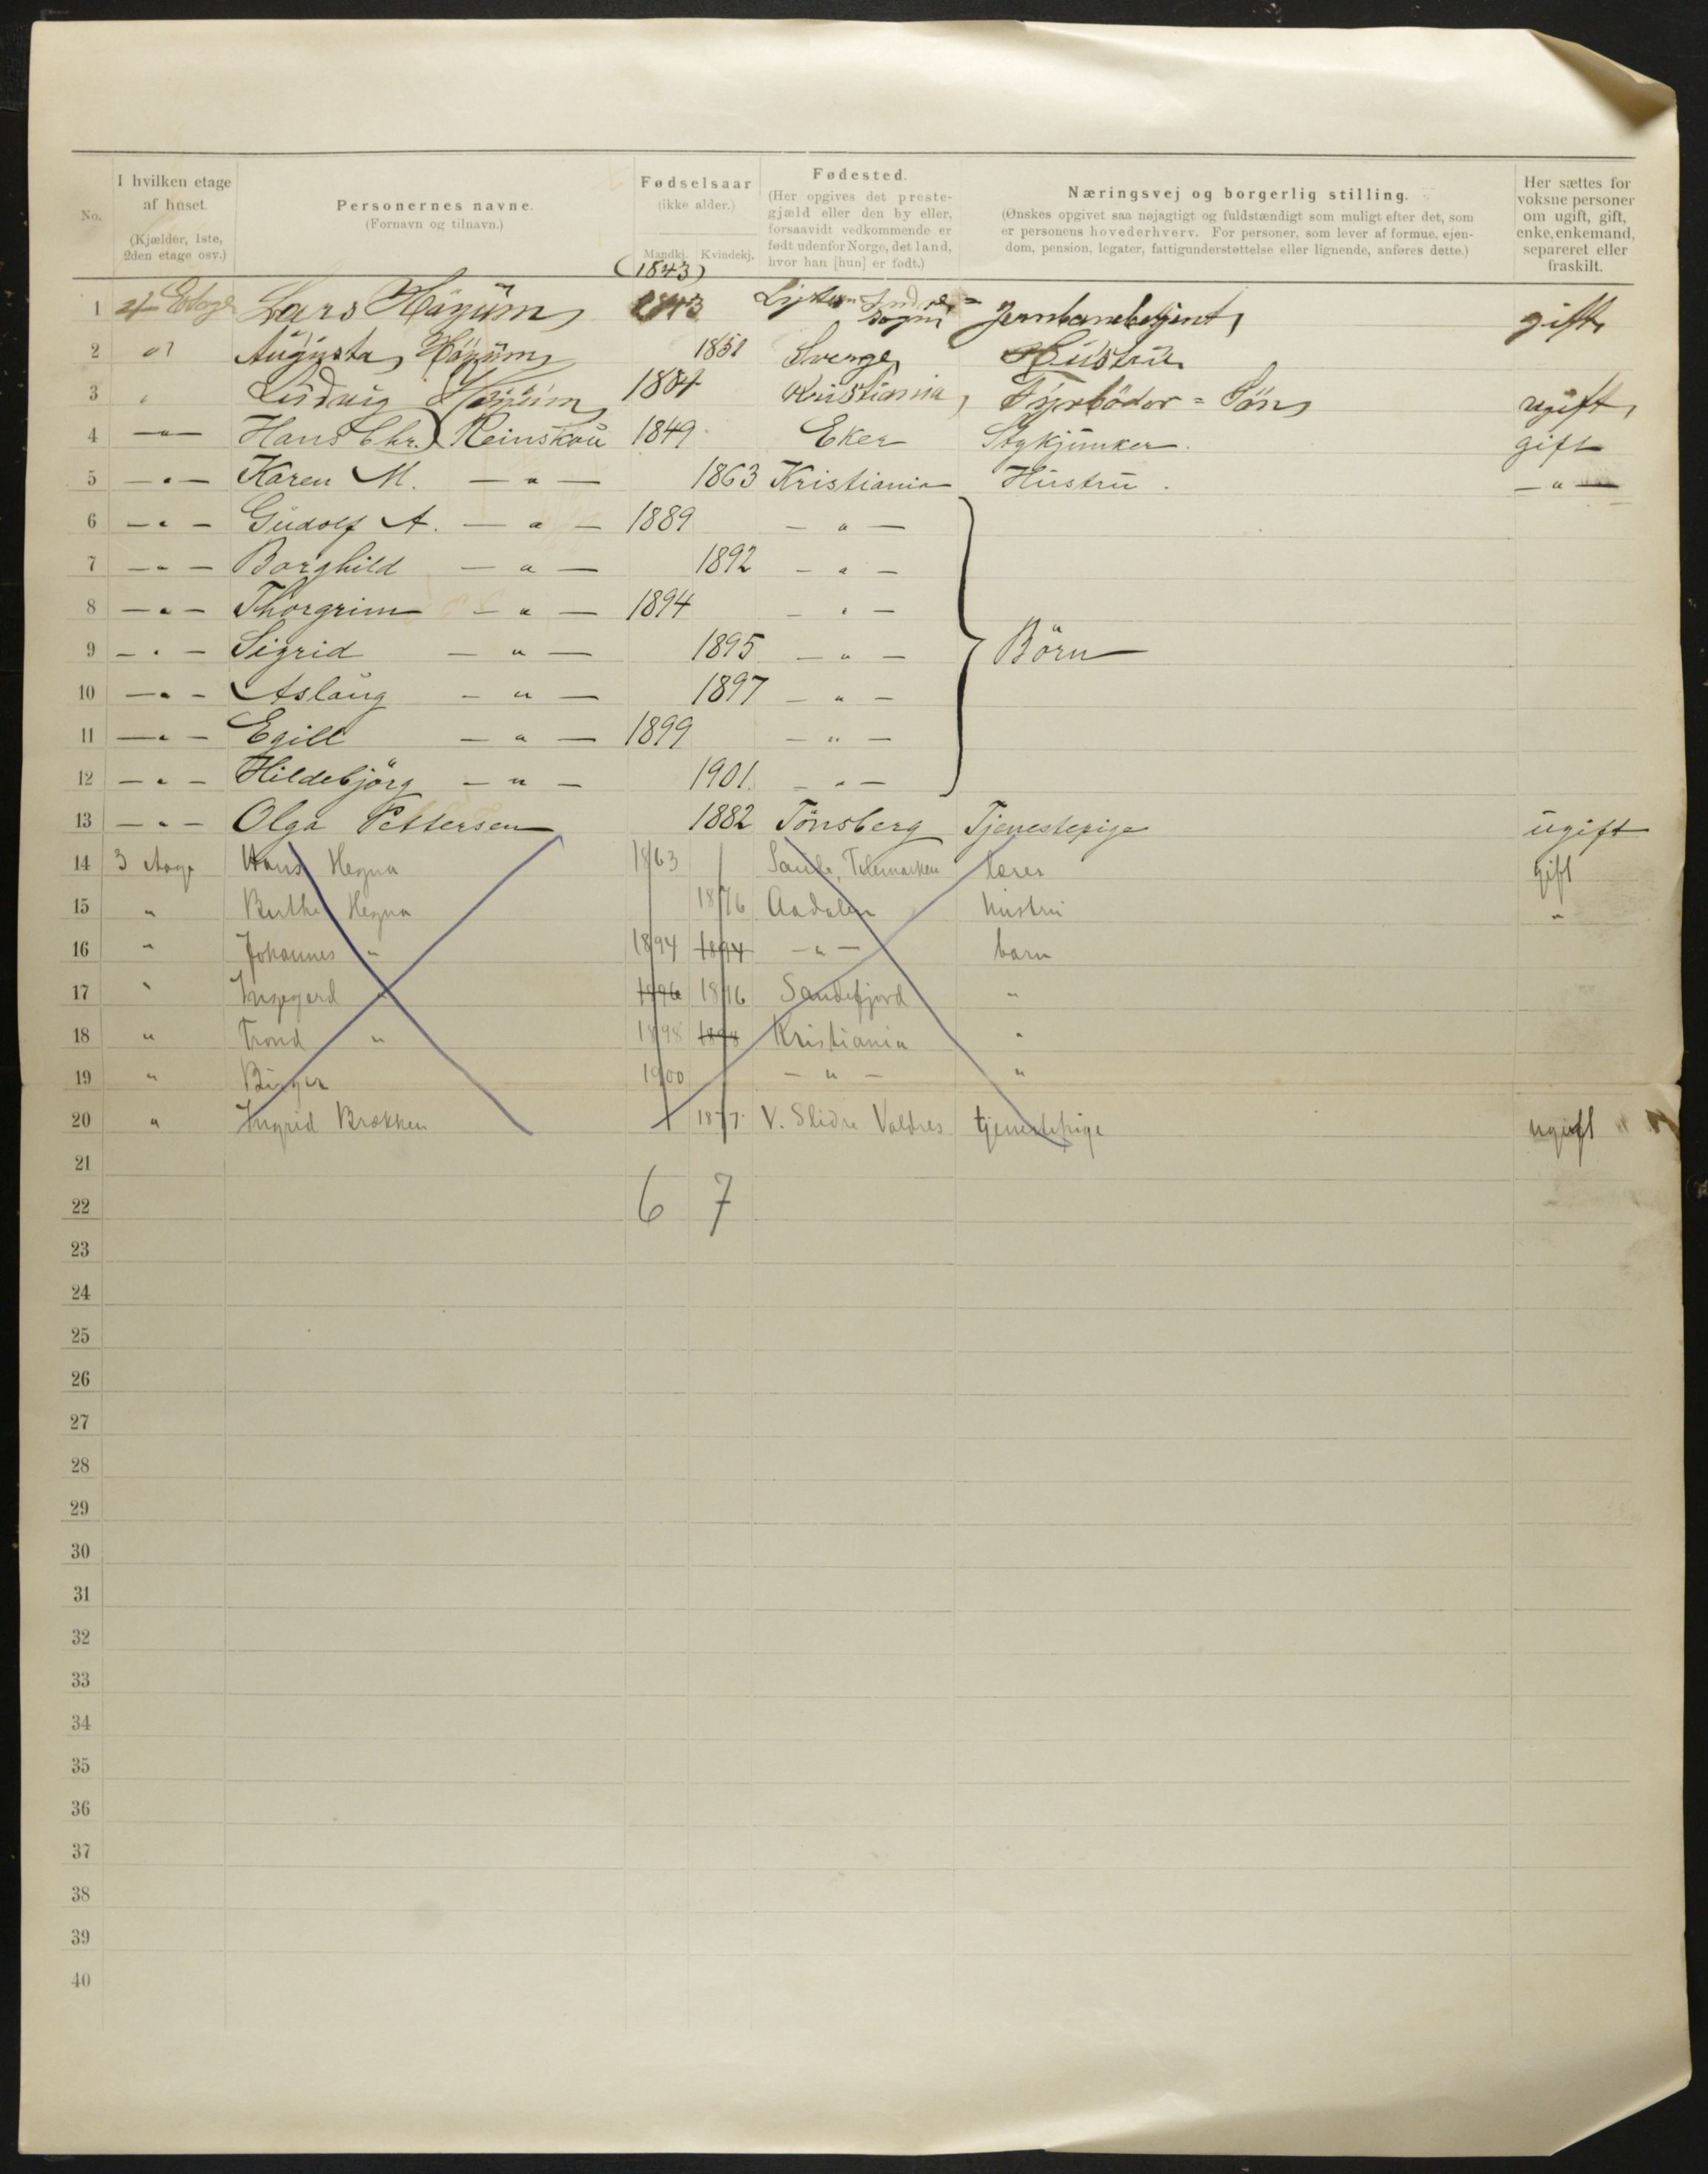 No.
I hvilken etage af huset.
(Kjælder, 1ste, 2den etage osv.)
Personernes navne.
(Fornavn og tilnavn.)
Fødselsaar
(ikke alder.)
Mandkj. Kvindekj.
Fødested.
(Her opgives det preste-
gjæld eller den by eller,
forsaavidt vedkommende er
født udenfor Norge, det land,
hvor han [hun] er født.)
Næringsvej og borgerlig stilling.
(Ønskes opgivet saa nøjagtigt og fuldstændigt som muligt efter det, som
er personens hovederhverv. For personer, som lever af formue, ejen-
dom, pension, legater, fattigunderstøttelse eller lignende, anføres dette.)
Her sættes for
voksne personer
om ugift, gift,
enke, enkemand,
separeret eller
fraskilt.
(1843)
1 4 Etage Lars 1843 Sogn Jernbanebetjent gift
2 " Augusta 1851 Sverge Hustru
3 " Ludvig 1884 Kristiania, Fyrböder = Sön ugift
4 — " — Hans Chr. Reinskou 1849 Eker Stykjunker. gift
5 — " — Karen M. — " — 1863 Kristiania Hustru. — " —
6 — " — Gudolf A. — " — 1889 — " —
7 — " — Borghild — " — 1892 — " —
8 — " — Thorgrim — " — 1894 — " —
9 — " — Sigrid — " — 1895 — " — Börn
10 — " — Aslaug — " — 1897 — " —
11 — " — Egill — " — 1899 — " —
12 — " — Hildebjörg — " — 1901. — " —
13 — " — Olga Pettersen 1882 Tönsberg Tjenestepige ugift
14 3 Hans Hegna 1863 Telemarken lærer gift
15 " Berthe Hegna 1876 Aadalen hustru "
16 " Johannes " 1894 1894 — " — barn
17 " Ingegerd " 1896 1896 Sandefjord "
18 " Trond " 1898 1898 Kristiania "
19 " Birger 1900 — " — "
20 " Ingrid Brækken 1877 V. Slidre Valdres tjenestepige ugift
21
22 6 7
23
24
25
26
27
28
29
30
31
32
33
34
35
36
37
38
39
40